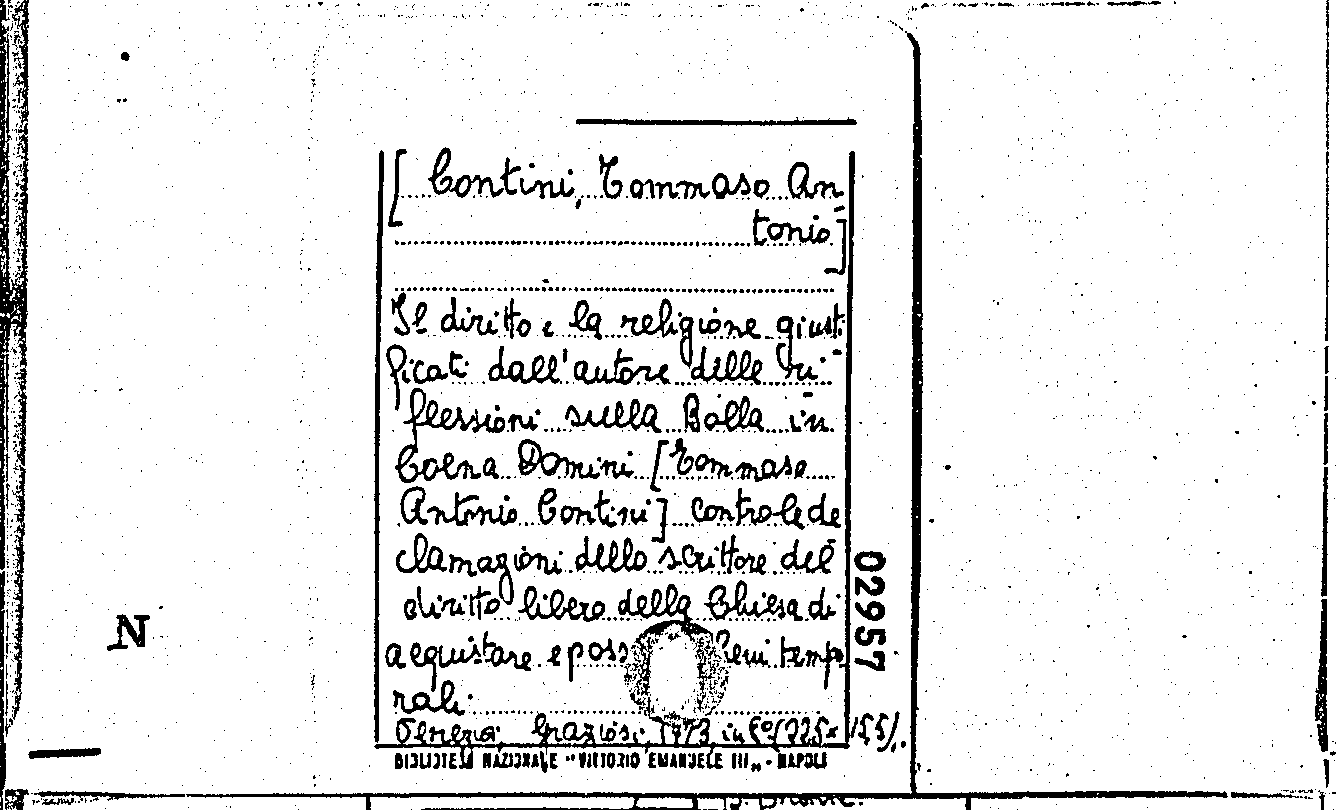 [Contini, Tommaso An
tonio]
Il diritto e la religione giusti
ficati dall'autore delle ri
flessioni sulla Bolla in
Coena Domini [Tommaso
Antonio Contini] contro le de
clamazioni dello scrittore del
diritto libero della Chiesa di
acquistare e poss beni tempo
rali.
Venezia, Graziosi, in 8° 155).
BIBLIOTECA NAZIONALE "VITTORIO EMANUELE III" - NAPOLI
02957
N